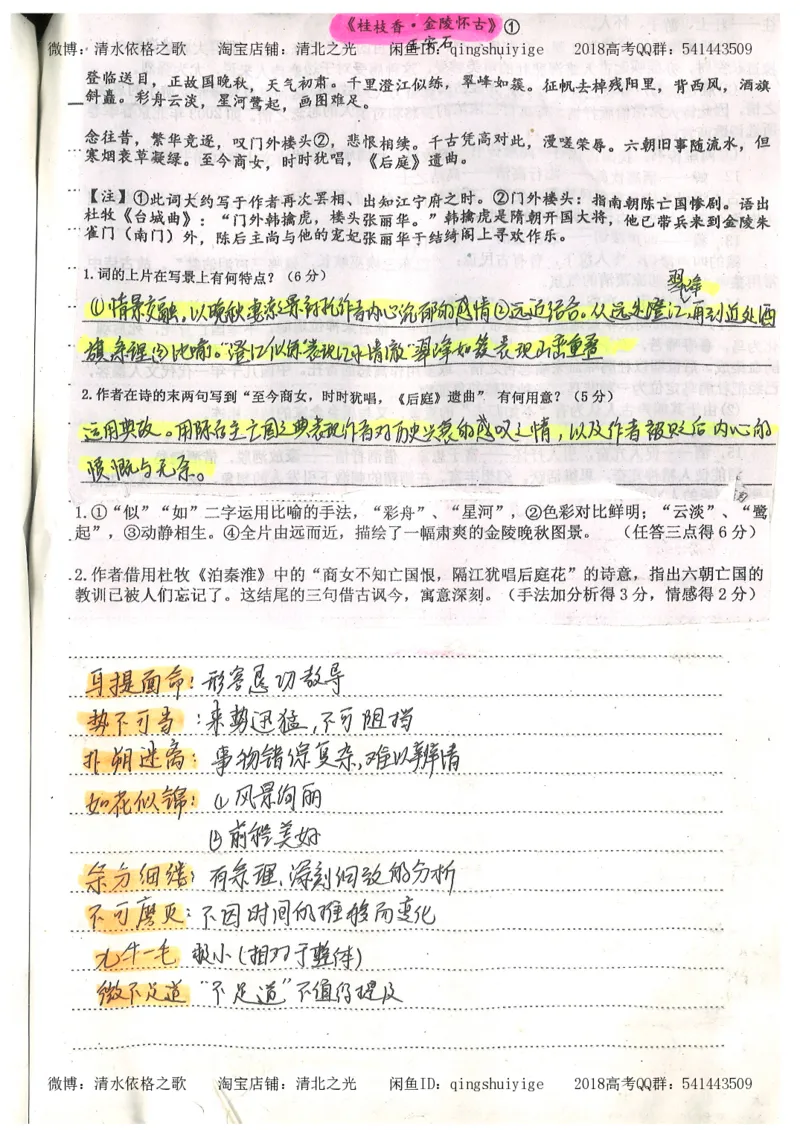 《桂枝香·金陵怀古》①
王安石
微博：清水依格之歌 淘宝店铺：清北之光 闲鱼ID：qingshuiyige 2018高考QQ群：541443509
登临送目，正故国晚秋，天气初肃。千里澄江似练，翠峰如簇。征帆去棹残阳里，背西风，酒旗
斜矗。彩舟云淡，星河鹭起，画图难足。
念往昔，繁华竞逐，叹门外楼头②，悲恨相续。千古凭高对此，漫嗟荣辱。六朝旧事随流水，但
寒烟衰草凝绿。至今商女，时时犹唱，《后庭》遗曲。
【注】①此词大约写于作者再次罢相、出知江宁府之时。②门外楼头：指南朝陈亡国惨剧。语出
杜牧《台城曲》：“门外韩擒虎，楼头张丽华。”韩擒虎是隋朝开国大将，他已带兵来到金陵朱
雀门（南门）外，陈后主尚与他的宠妃张丽华于结绮阁上寻欢作乐。
1.词的上片在写景上有何特点？（6分）
翠峰
①情景交融，以晚秋萧凉之景衬托作者内心沉郁的感情②远近结合。从远处澄江，再到近处酒
旗，条理③比喻。“澄江似练表现江水清澈”翠峰如簇表现山峦重叠
2.作者在诗的末两句写到“至今商女，时时犹唱，《后庭》遗曲” 有何用意？（5分）
运用典故。用陈后主亡国之典表现作者对历史兴衰的感叹之情，以及作者被贬之后内心的
愤慨与无奈。
1.①“似”“如”二字运用比喻的手法，“彩舟”、“星河”，②色彩对比鲜明；“云淡”、“鹭
起”，③动静相生。④全片由远而近，描绘了一幅肃爽的金陵晚秋图景。 （任答三点得6分）
2.作者借用杜牧《泊秦淮》中的“商女不知亡国恨，隔江犹唱后庭花”的诗意，指出六朝亡国的
教训已被人们忘记了。这结尾的三句借古讽今，寓意深刻。（手法加分析得3分，情感得2分）
耳提面命：形容恳切教导
势不可当：来势迅猛，不可阻挡
扑朔迷离：事物错综复杂，难以辨清
如花似锦：①风景绚丽
②前程美好
条分细缕：有条理、深刻细致的分析
不可磨灭：不因时间的推移而变化
九牛一毛 极小（相对于整体）
微不足道 “不足道”不值得提及
微博：清水依格之歌 淘宝店铺：清北之光 闲鱼ID：qingshuiyige 2018高考QQ群：541443509